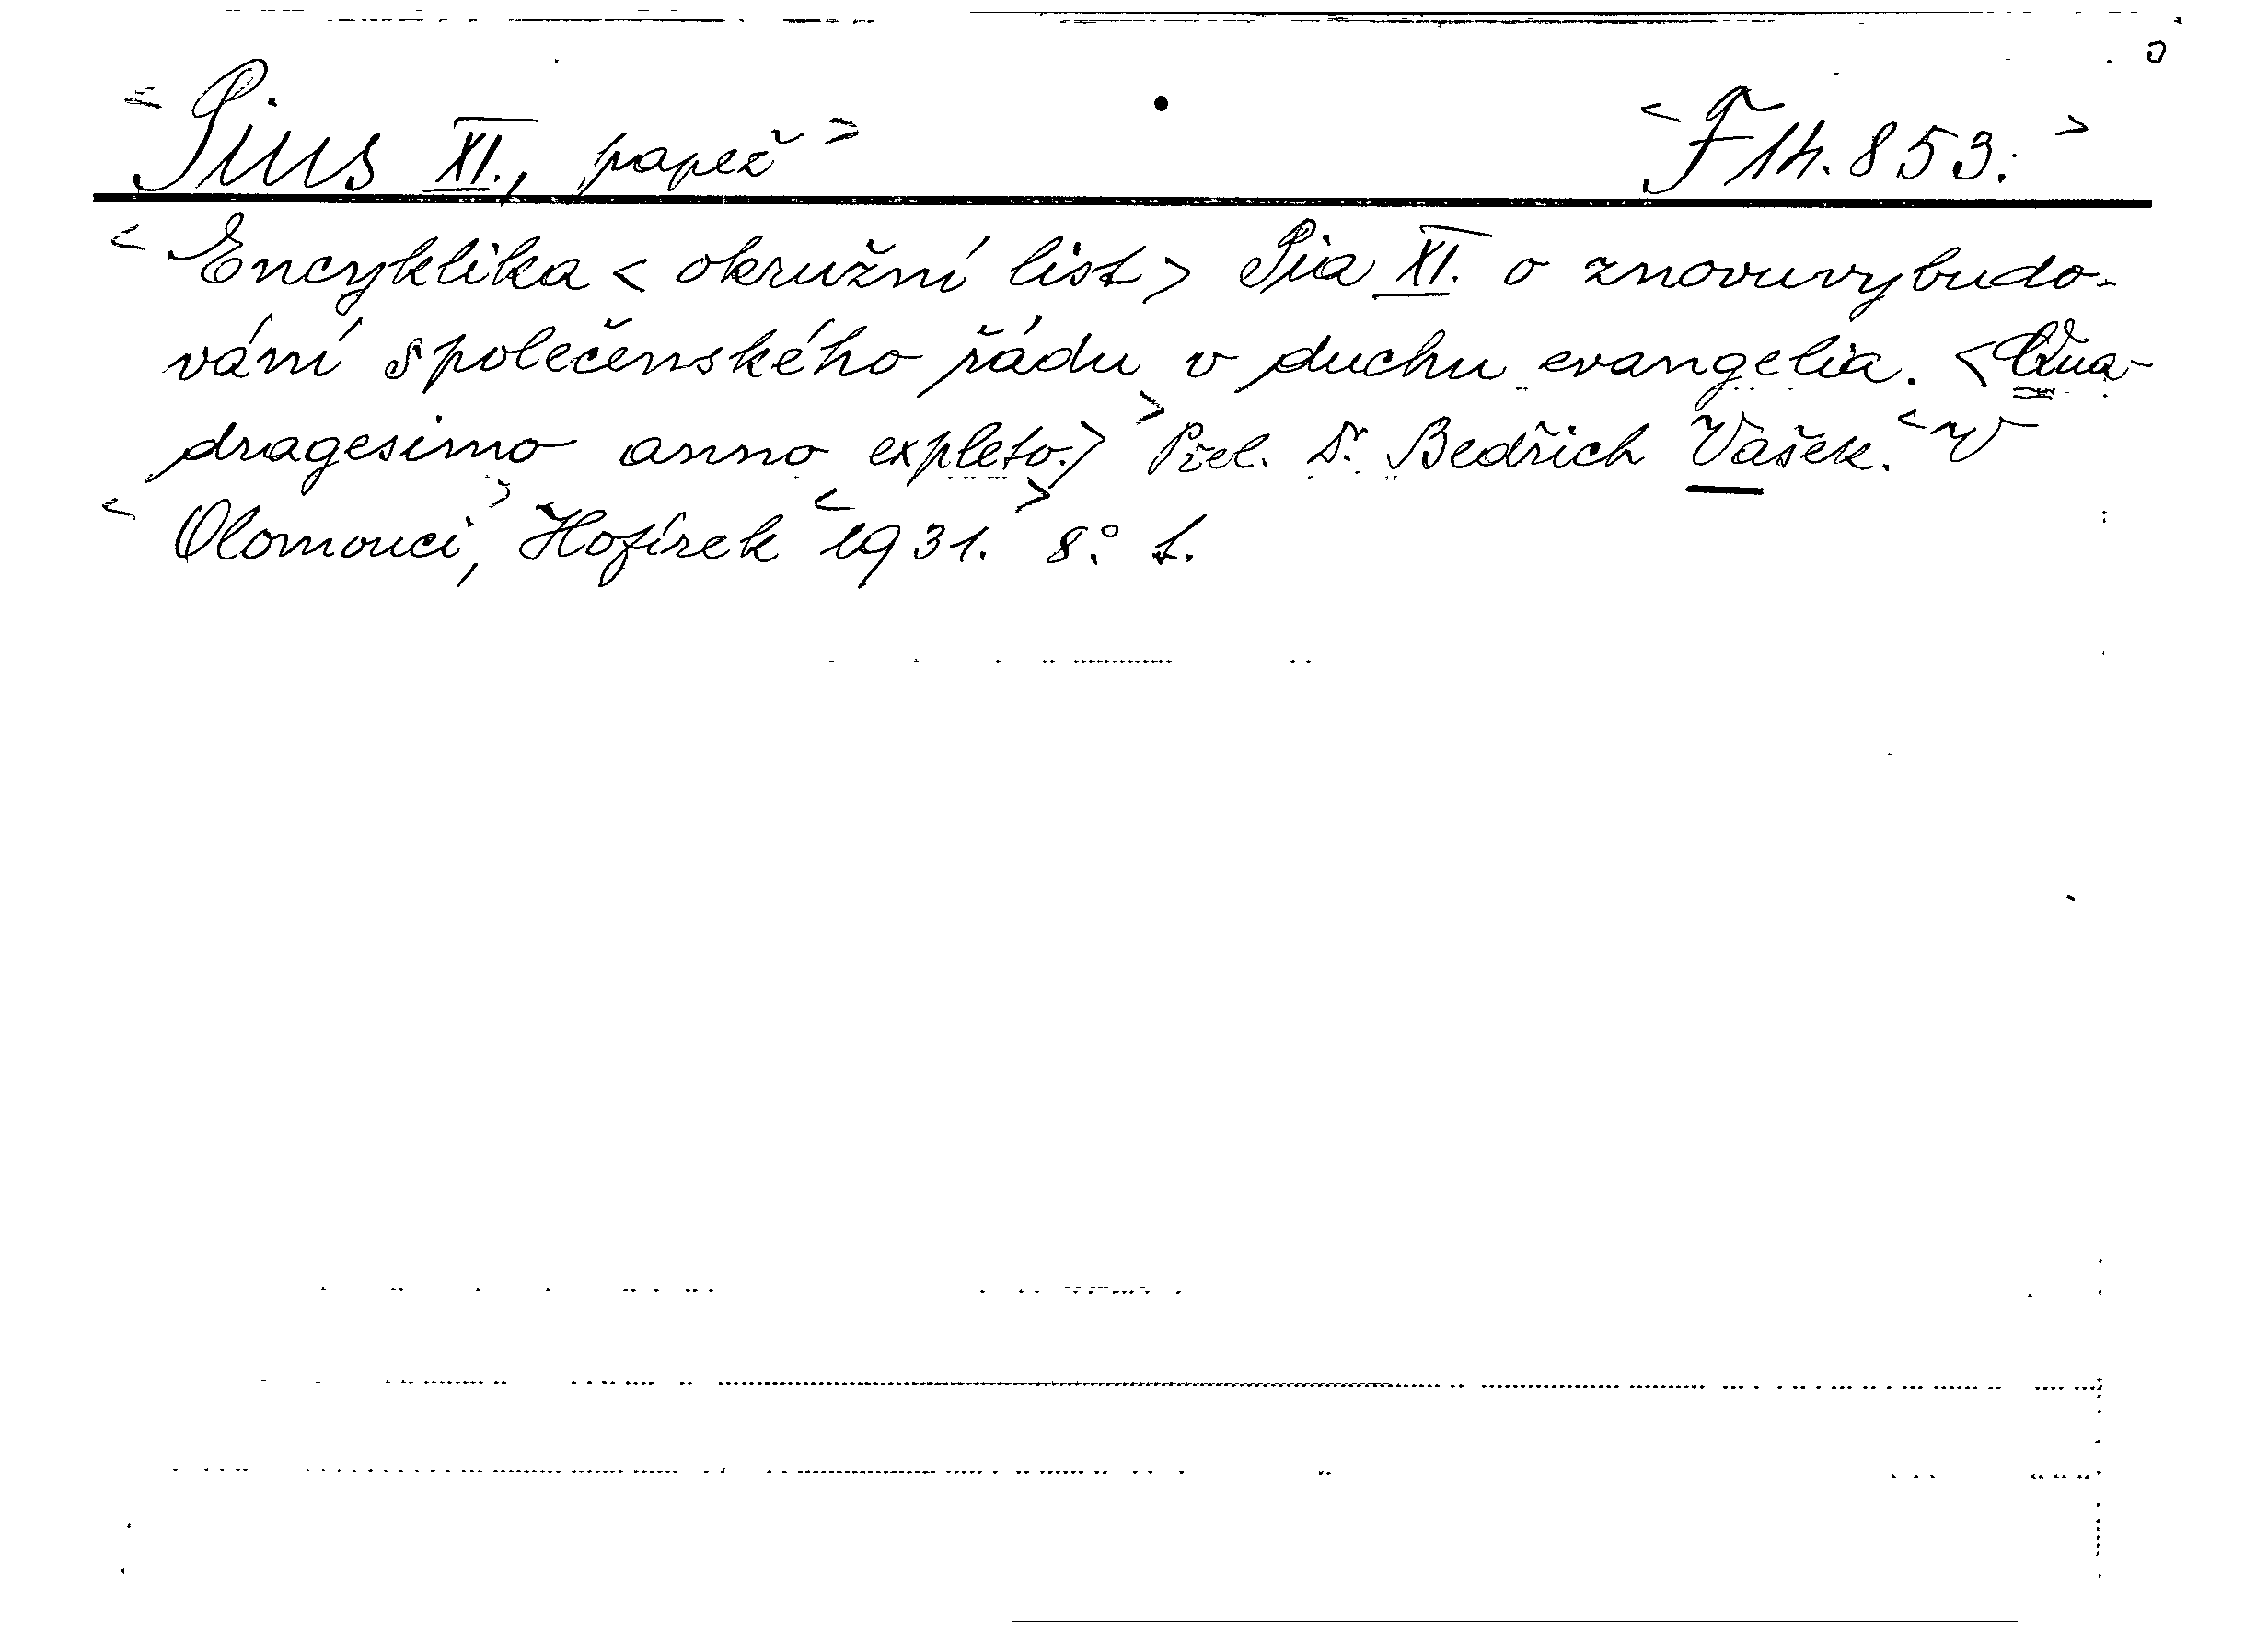 < Pius XI., papež > < F 14.853. >
< Encyklika < okružní list > Pia XI. o znovuvybudo-
vání společenského řádu v duchu evangelia. < Qua-
dragesimo anno expleto. > > Přel. Dr. Bedřich Vašek. < V
< Olomouci, > Hofírek < 1931. > 8° 1.